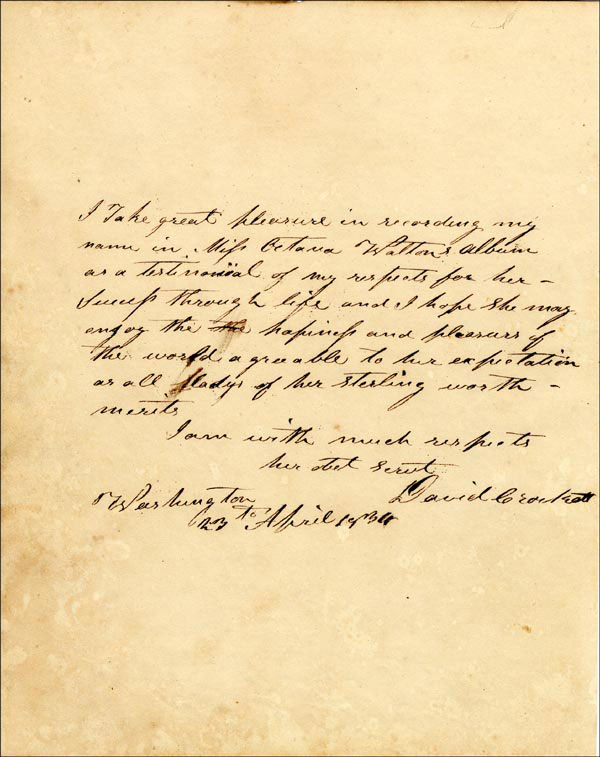 I Take great pleasure in recording my
name in Miss Octava Waltons Album
as a testimonial of my respects for her –
Success through life and I hope She may
enjoy the the hapiness and pleasurs of
the world agreable to her expectation
as all Ladys of her Sterling worth –
merits
I am with much respects
her obt Servt
David Crockett
Washington
23 to April 1834